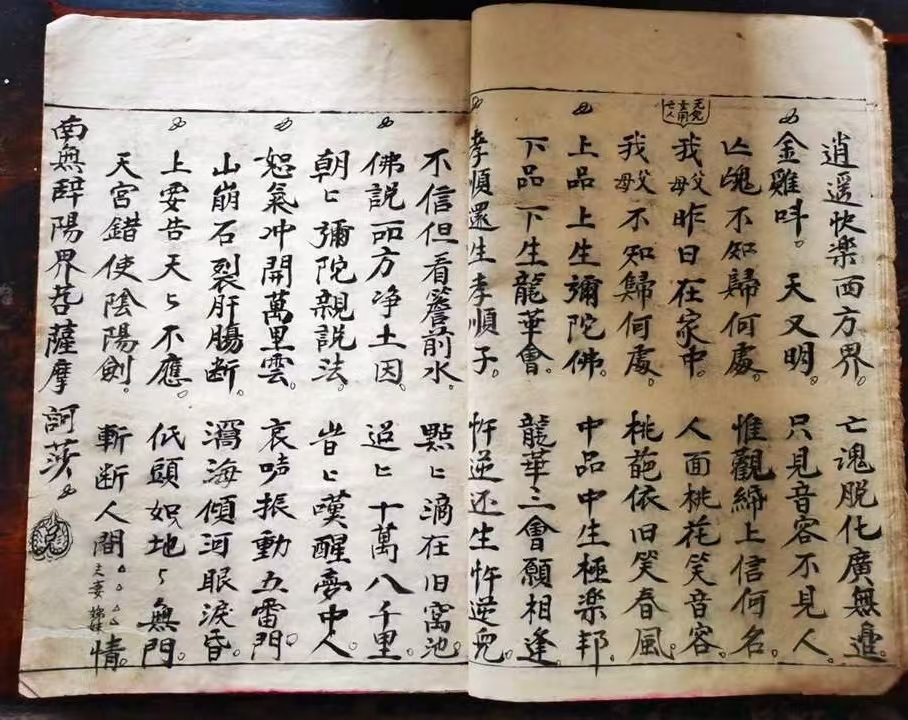 逍遥快楽西方界。亡魂脱化廣無邊。
金雞呌。天又明。只見音容不見人。
亡魄不知歸何處。惟觀締上信何名。
我父母昨日在家中。人面桃花笑音容。
我父母不知歸何處。桃葩依旧笑春風。
上品上生彌陀佛。中品中生極楽邦。
下品下生龍華會。龍華三會願相逢。
孝順還生孝順子。忤逆还生忤逆児。
不信但看簷前水。點匕滴在旧窩池。
佛説西方净土因。迢匕十萬八千里。
朝匕彌陀親説法。旹匕嘆醒夢中人。
怒氣冲開萬里雲。哀振動五雷門。
山崩石裂肝腸断。瀉海傾河眼淚昏。
上要告天々不應。低頭如地々無門。
天宮錯使陰陽劍。斬断人間夫妻情。
南無辞陽界菩薩摩訶莎